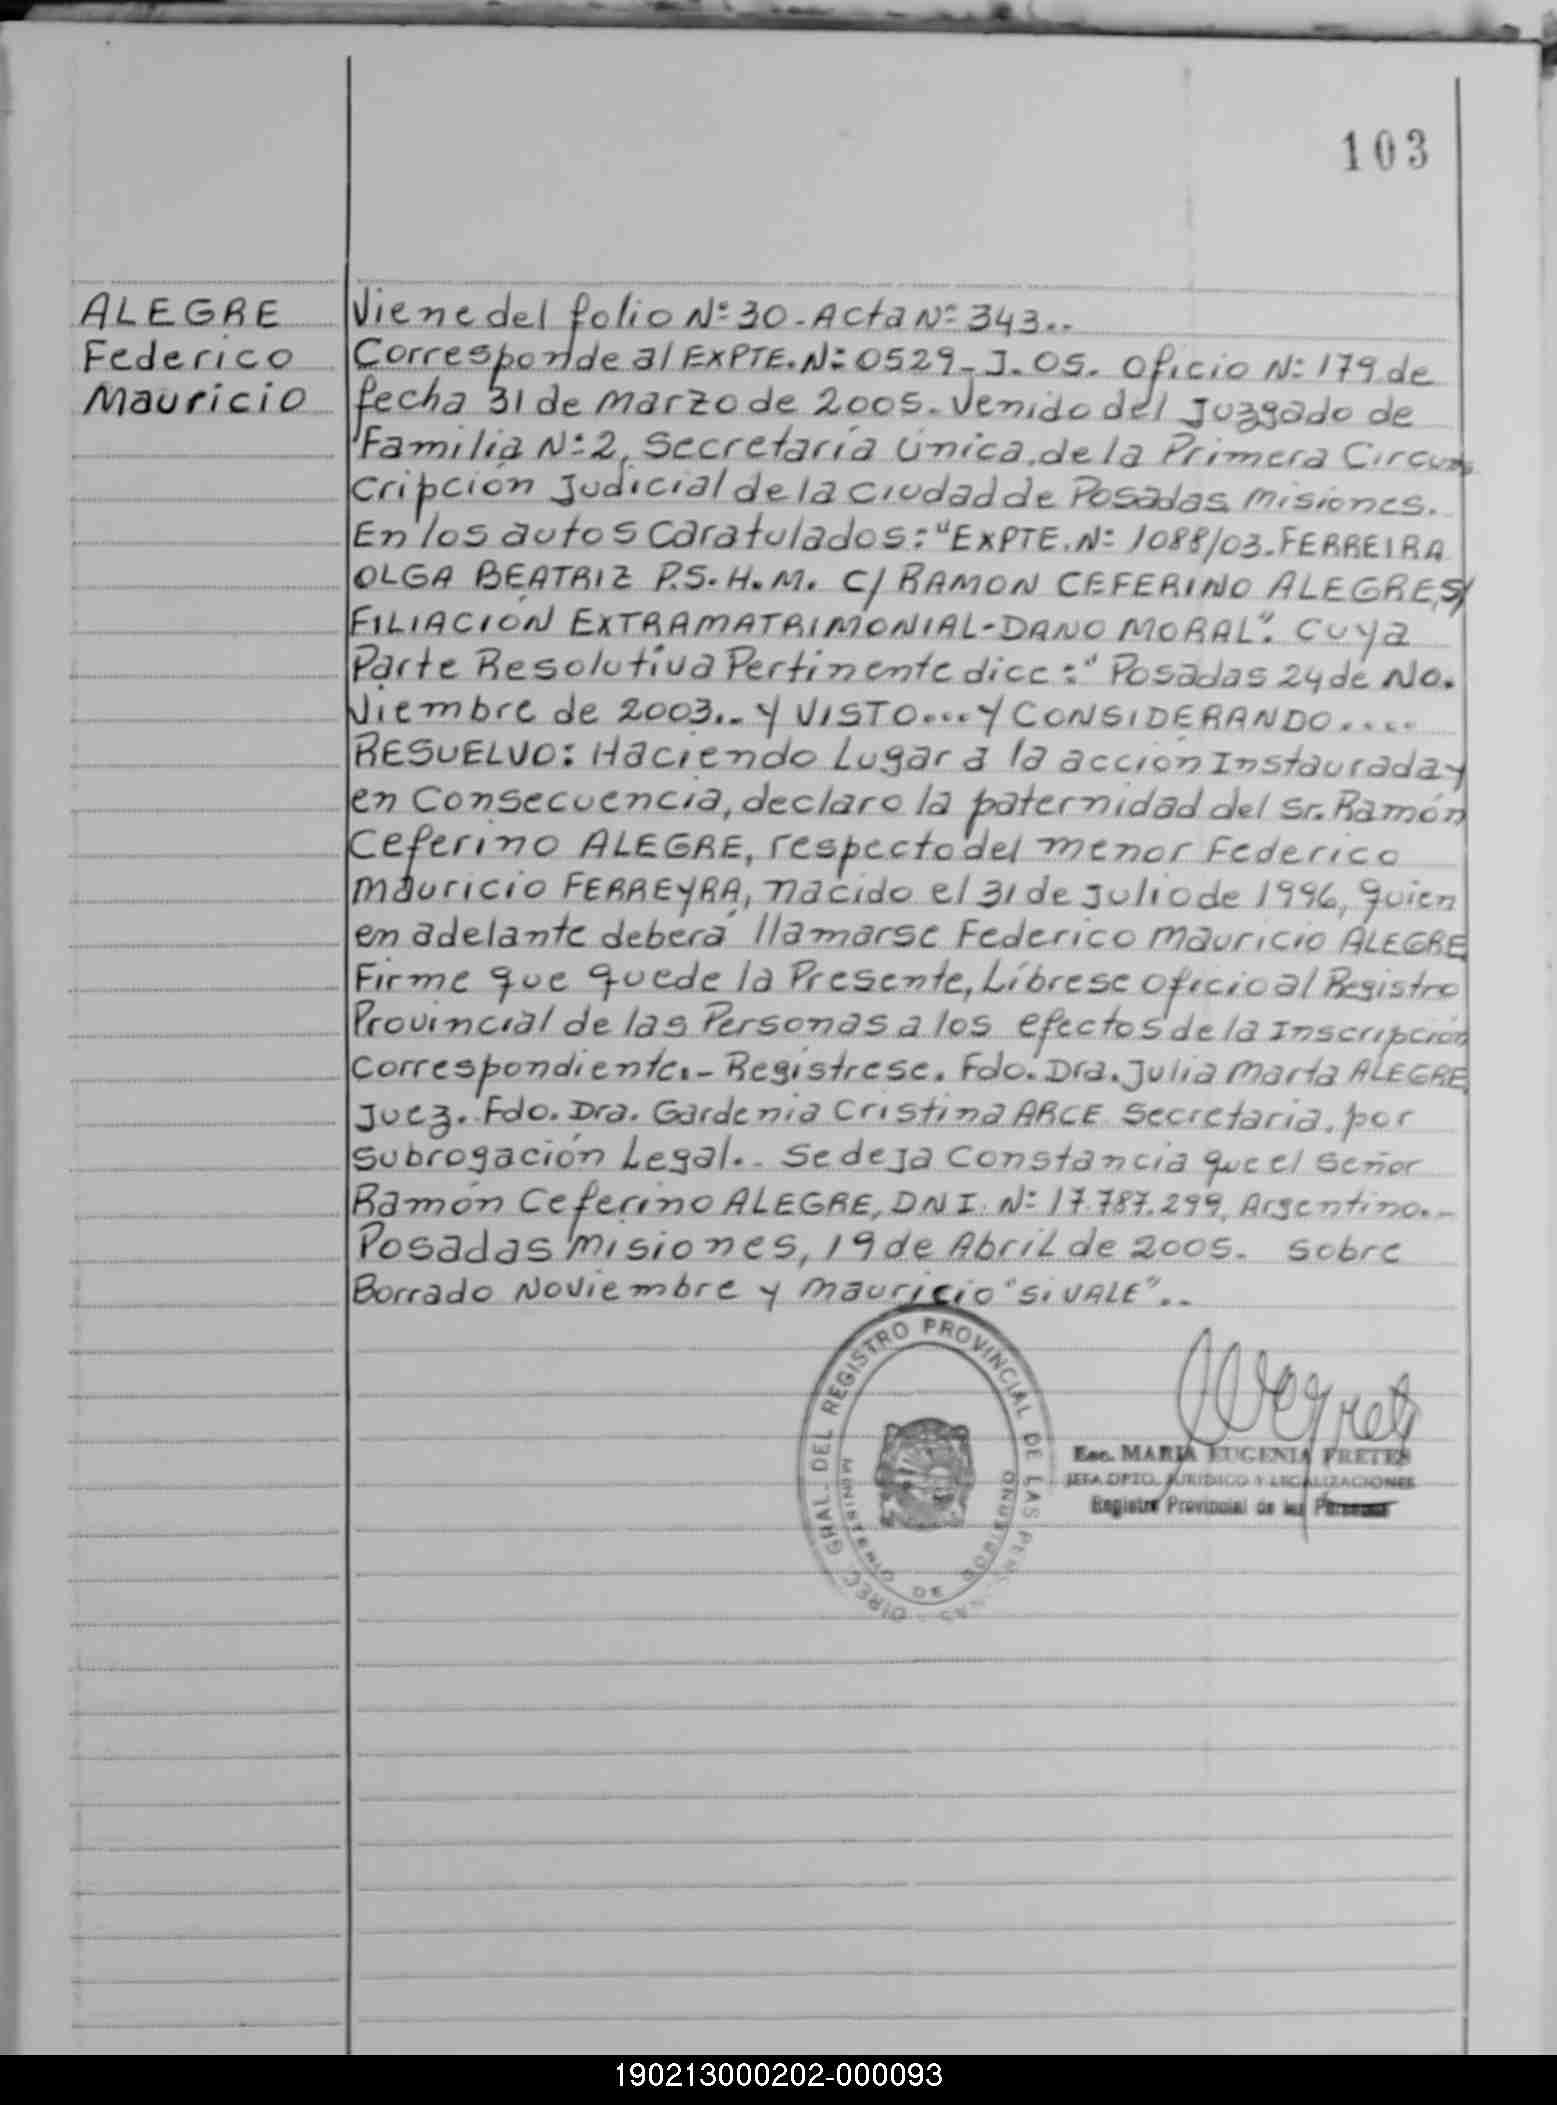 103
ALEGRE
Federico
Mauricio
Viene del folio Nº 30 - Acta Nº 343..
Corresponde al EXPTE. Nº 0529 - J. 05. Oficio Nº 179 de
fecha 31 de Marzo de 2005. Venido del Juzgado de
Familia Nº 2, Secretaría Única, de la Primera Circuns
cripción Judicial de la Ciudad de Posadas Misiones.
En los autos Caratulados: "EXPTE. Nº 1088/03. FERREIRA
OLGA BEATRIZ P.S.H.M. C/ RAMON CEFERINO ALEGRE, S/
FILIACIÓN EXTRAMATRIMONIAL-DANO MORAL". Cuya
Parte Resolutiva Pertinente dice: "Posadas 24 de No.
Viembre de 2003.. Y VISTO.... Y CONSIDERANDO.....
RESUELVO: Haciendo Lugar a la acción Instaurada y
en Consecuencia, declaro la paternidad del Sr. Ramón
Ceferino ALEGRE, respecto del menor Federico
Mauricio FERREYRA, nacido el 31 de Julio de 1996, quien
en adelante deberá llamarse Federico Mauricio ALEGRE
Firme que quede la Presente, Líbrese oficio al Registro
Provincial de las Personas a los efectos de la Inscripción
Correspondiente.- Regístrese. Fdo. Dra. Julia Marta ALEGRE
Juez. Fdo. Dra. Gardenia Cristina ARCE Secretaria, por
Subrogación Legal.. Se deja Constancia que el Señor
Ramón Ceferino ALEGRE, DNI. Nº 17.787.299, Argentino.-
Posadas Misiones, 19 de Abril de 2005. Sobre
Borrado Noviembre y Mauricio "SI VALE"..
DIREC. GRAL. DEL REGISTRO PROVINCIAL DE LAS PERSONAS
MINISTERIO DE GOBIERNO
Esc. MARIA EUGENIA FRETES
JEFA DPTO. JURIDICO Y LEGALIZACIONES
Registro Provincial de las Personas
190213000202-000093